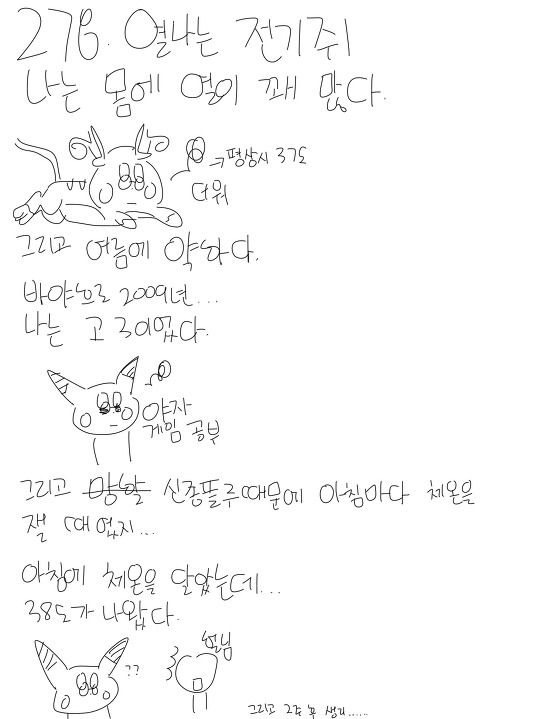 276. 열나는 전기쥐
나는 몸에 열이 꽤 많다.
→평상시 37도
더워
그리고 여름에 약하다.
바야흐로 2009년...
나는 고3이었다.
야자
게임 공부
그리고 망할 신종플루때문에 아침마다 체온을
잴 때였지...
아침에 체온을 닸았는데...
38도가 나왔다.
??
쌤님
그리고 2주 후 생긴......